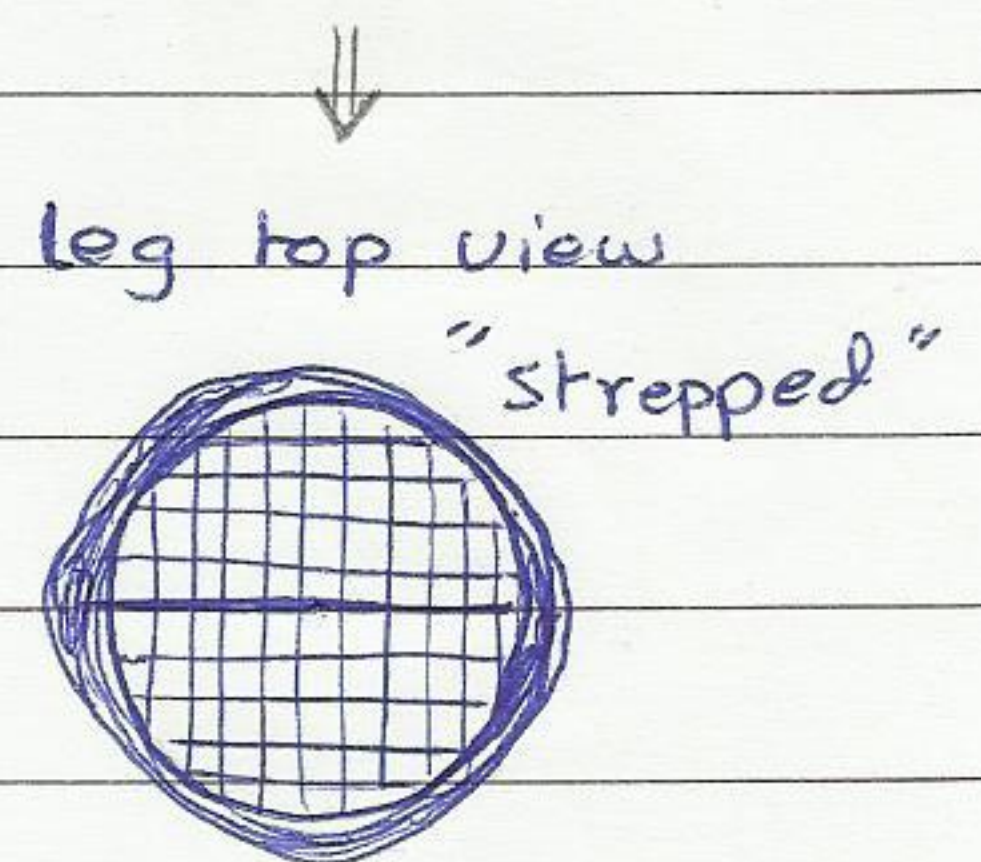 leg top view
"strepped"